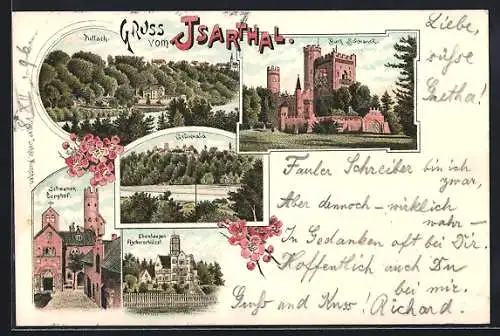 Gruss
vom Isarthal.
Pullach.
Burg Schwaneck
Grünwald
Schwaneck
Burghof.
Ebenhausen
Liebe,
süsse
Gretha!
Fauler Schreiber bin ich
zwar,
Aber dennoch – wirklich
wahr –
In Gedanken oft bei Dir.
Hoffentlich auch Du
bei mir.
Gruss und Kuss! Richard.